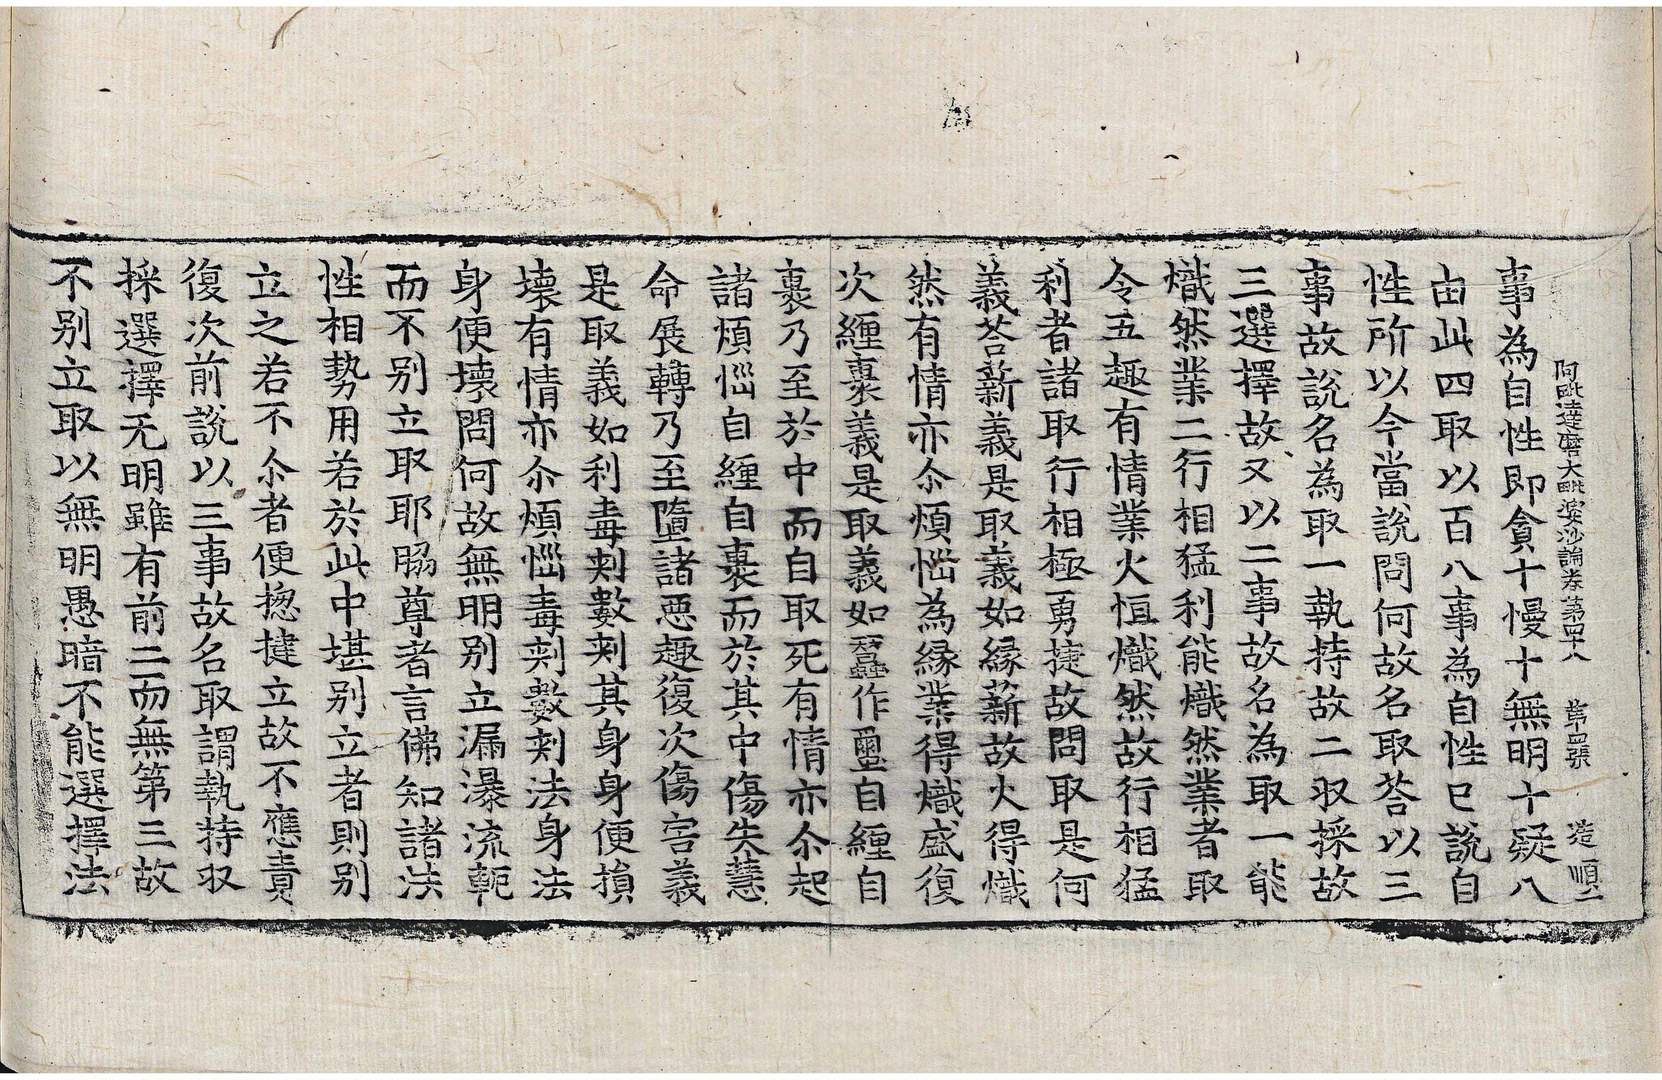 阿毗達磨大毗婆沙論卷第四十八　第四張　造　順
事為自性即貪十慢十無明十疑八
由此四取以百八事為自性已說自
性所以今當說問何故名取荅以三
事故說名為取一執持故二収採故
三選擇故又以二事故名為取一能
熾然業二行相猛利能熾然業者取
令五趣有情業火恒熾然故行相猛
利者諸取行相極勇捷故問取是何
義荅薪義是取義如緣薪故火得熾
然有情亦尒煩惱為緣業得熾盛復
次纏裹義是取義如蠶作璽自纏自
裹乃至於中而自取死有情亦尒起
諸煩惱自纏自裹而於其中傷失慧
命展轉乃至墮諸惡趣復次傷害義
是取義如利毒刺數刺其身身便損
壞有情亦尒煩惱毒刺數刺法身法
身便壞問何故無明別立漏瀑流軛
而不別立取耶脇尊者言佛知諸法
性相勢用若於此中堪別立者則別
立之若不尒者便揔揵立故不應責
復次前說以三事故名取謂執持収
採選擇无明雖有前二而無第三故
不別立取以無明愚暗不能選擇法